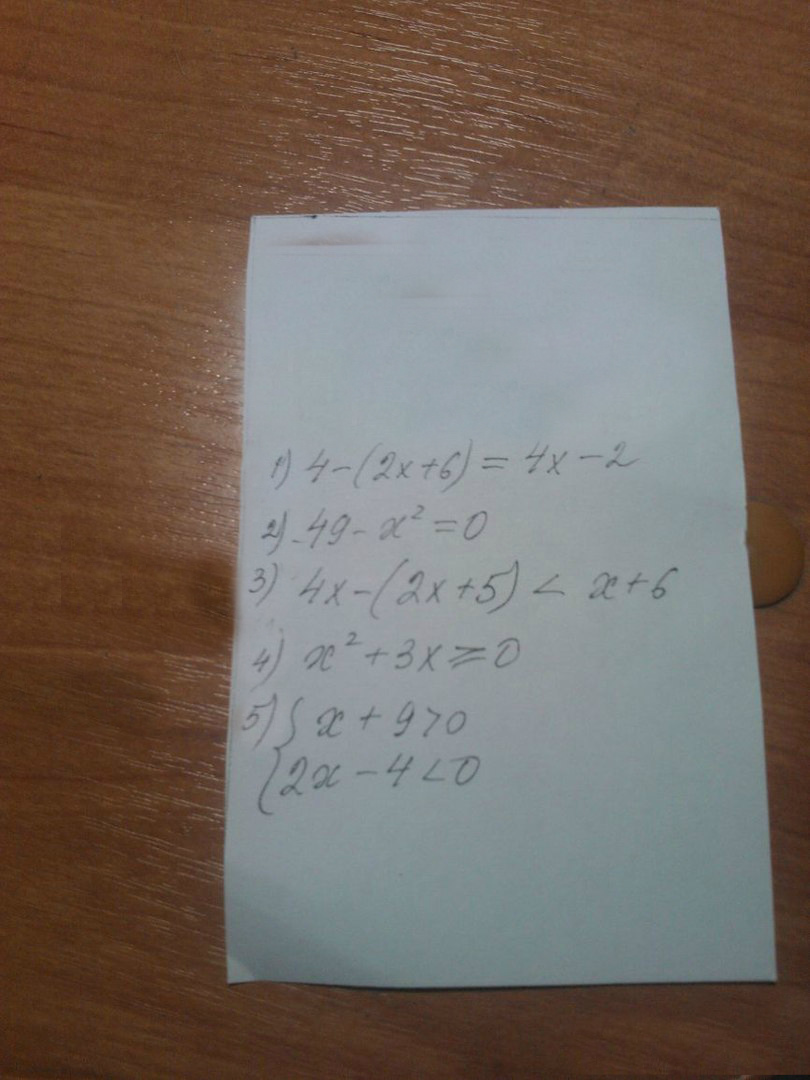 1) 4-(2x+6) = 4x-2
2) 49-x² = 0
3) 4x-(2x+5) < x+6
4) x²+3x ⩾ 0
5) { x + 9 > 0
{ 2x - 4 < 0